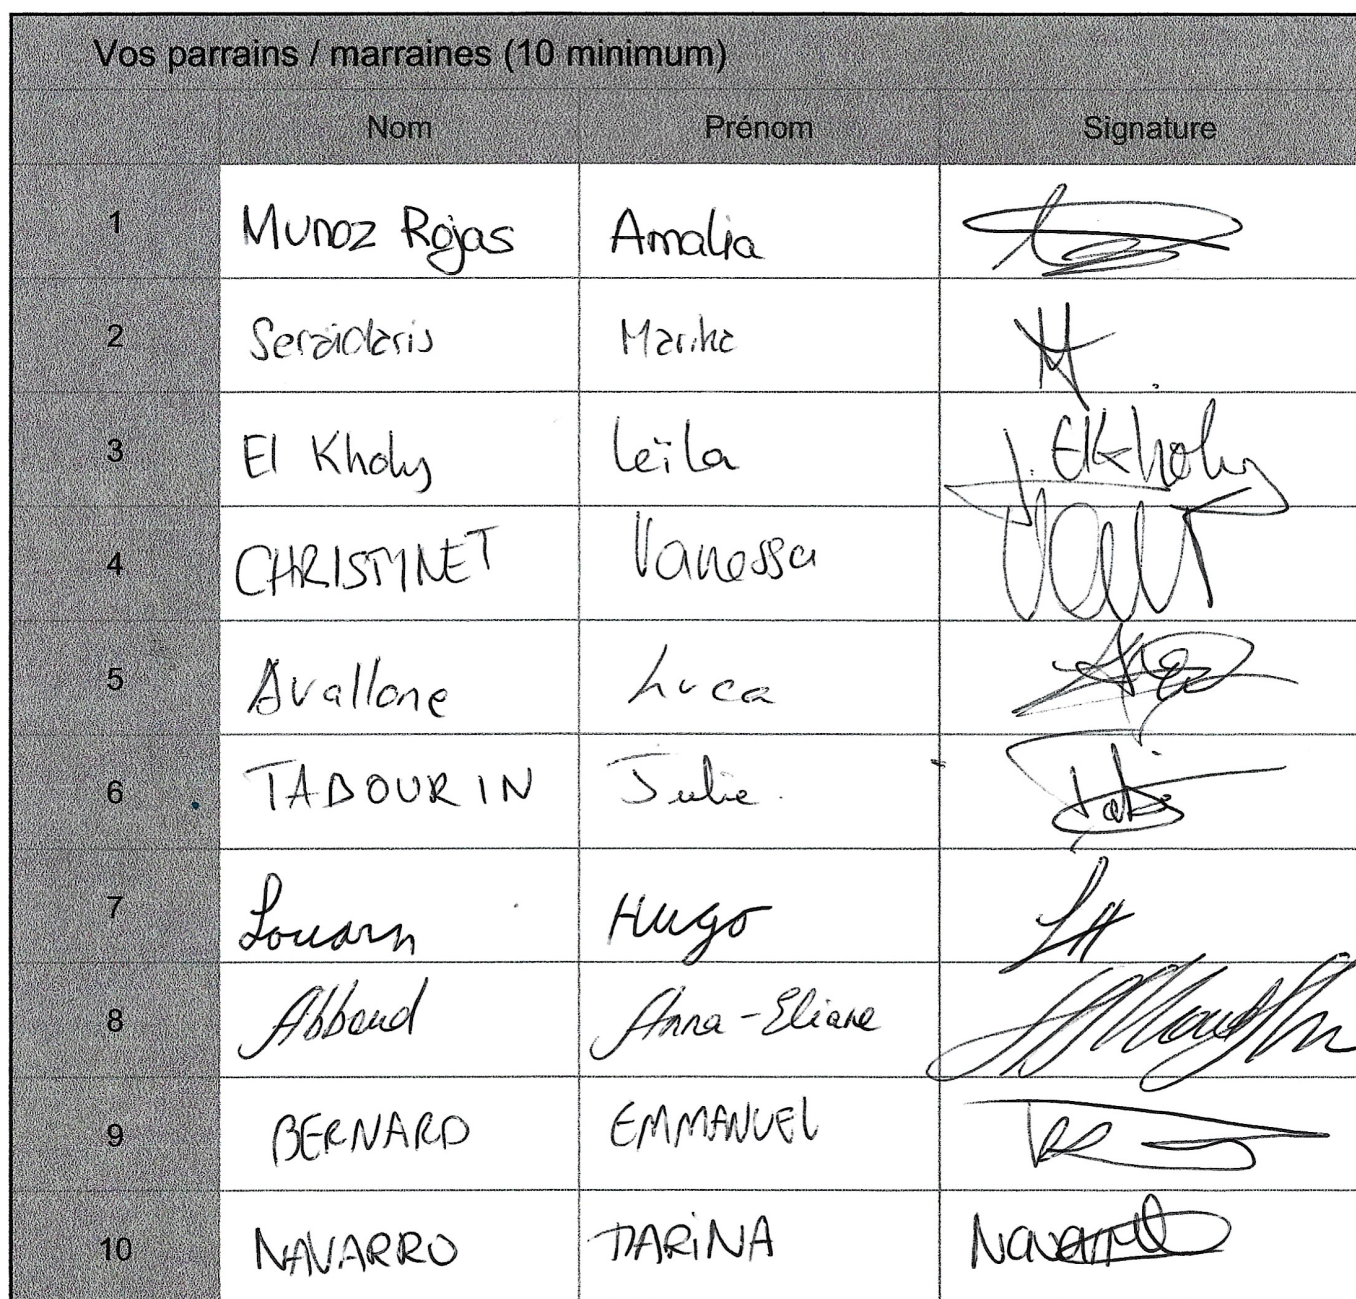 Vos parrains / marraines (10 minimum)
Nom Prénom Signature
1 Munoz Rojas Amalia
2 Seraïdaris Marika
3 El Kholy Leïla J. ElKholy
4 CHRISTINET Vanessa
5 Avallone Luca
6 TABOURIN Julie
7 Louarn Hugo LH
8 Abboud Anna-Eliane
9 BERNARD EMMANUEL
10 NAVARRO MARINA Navarro